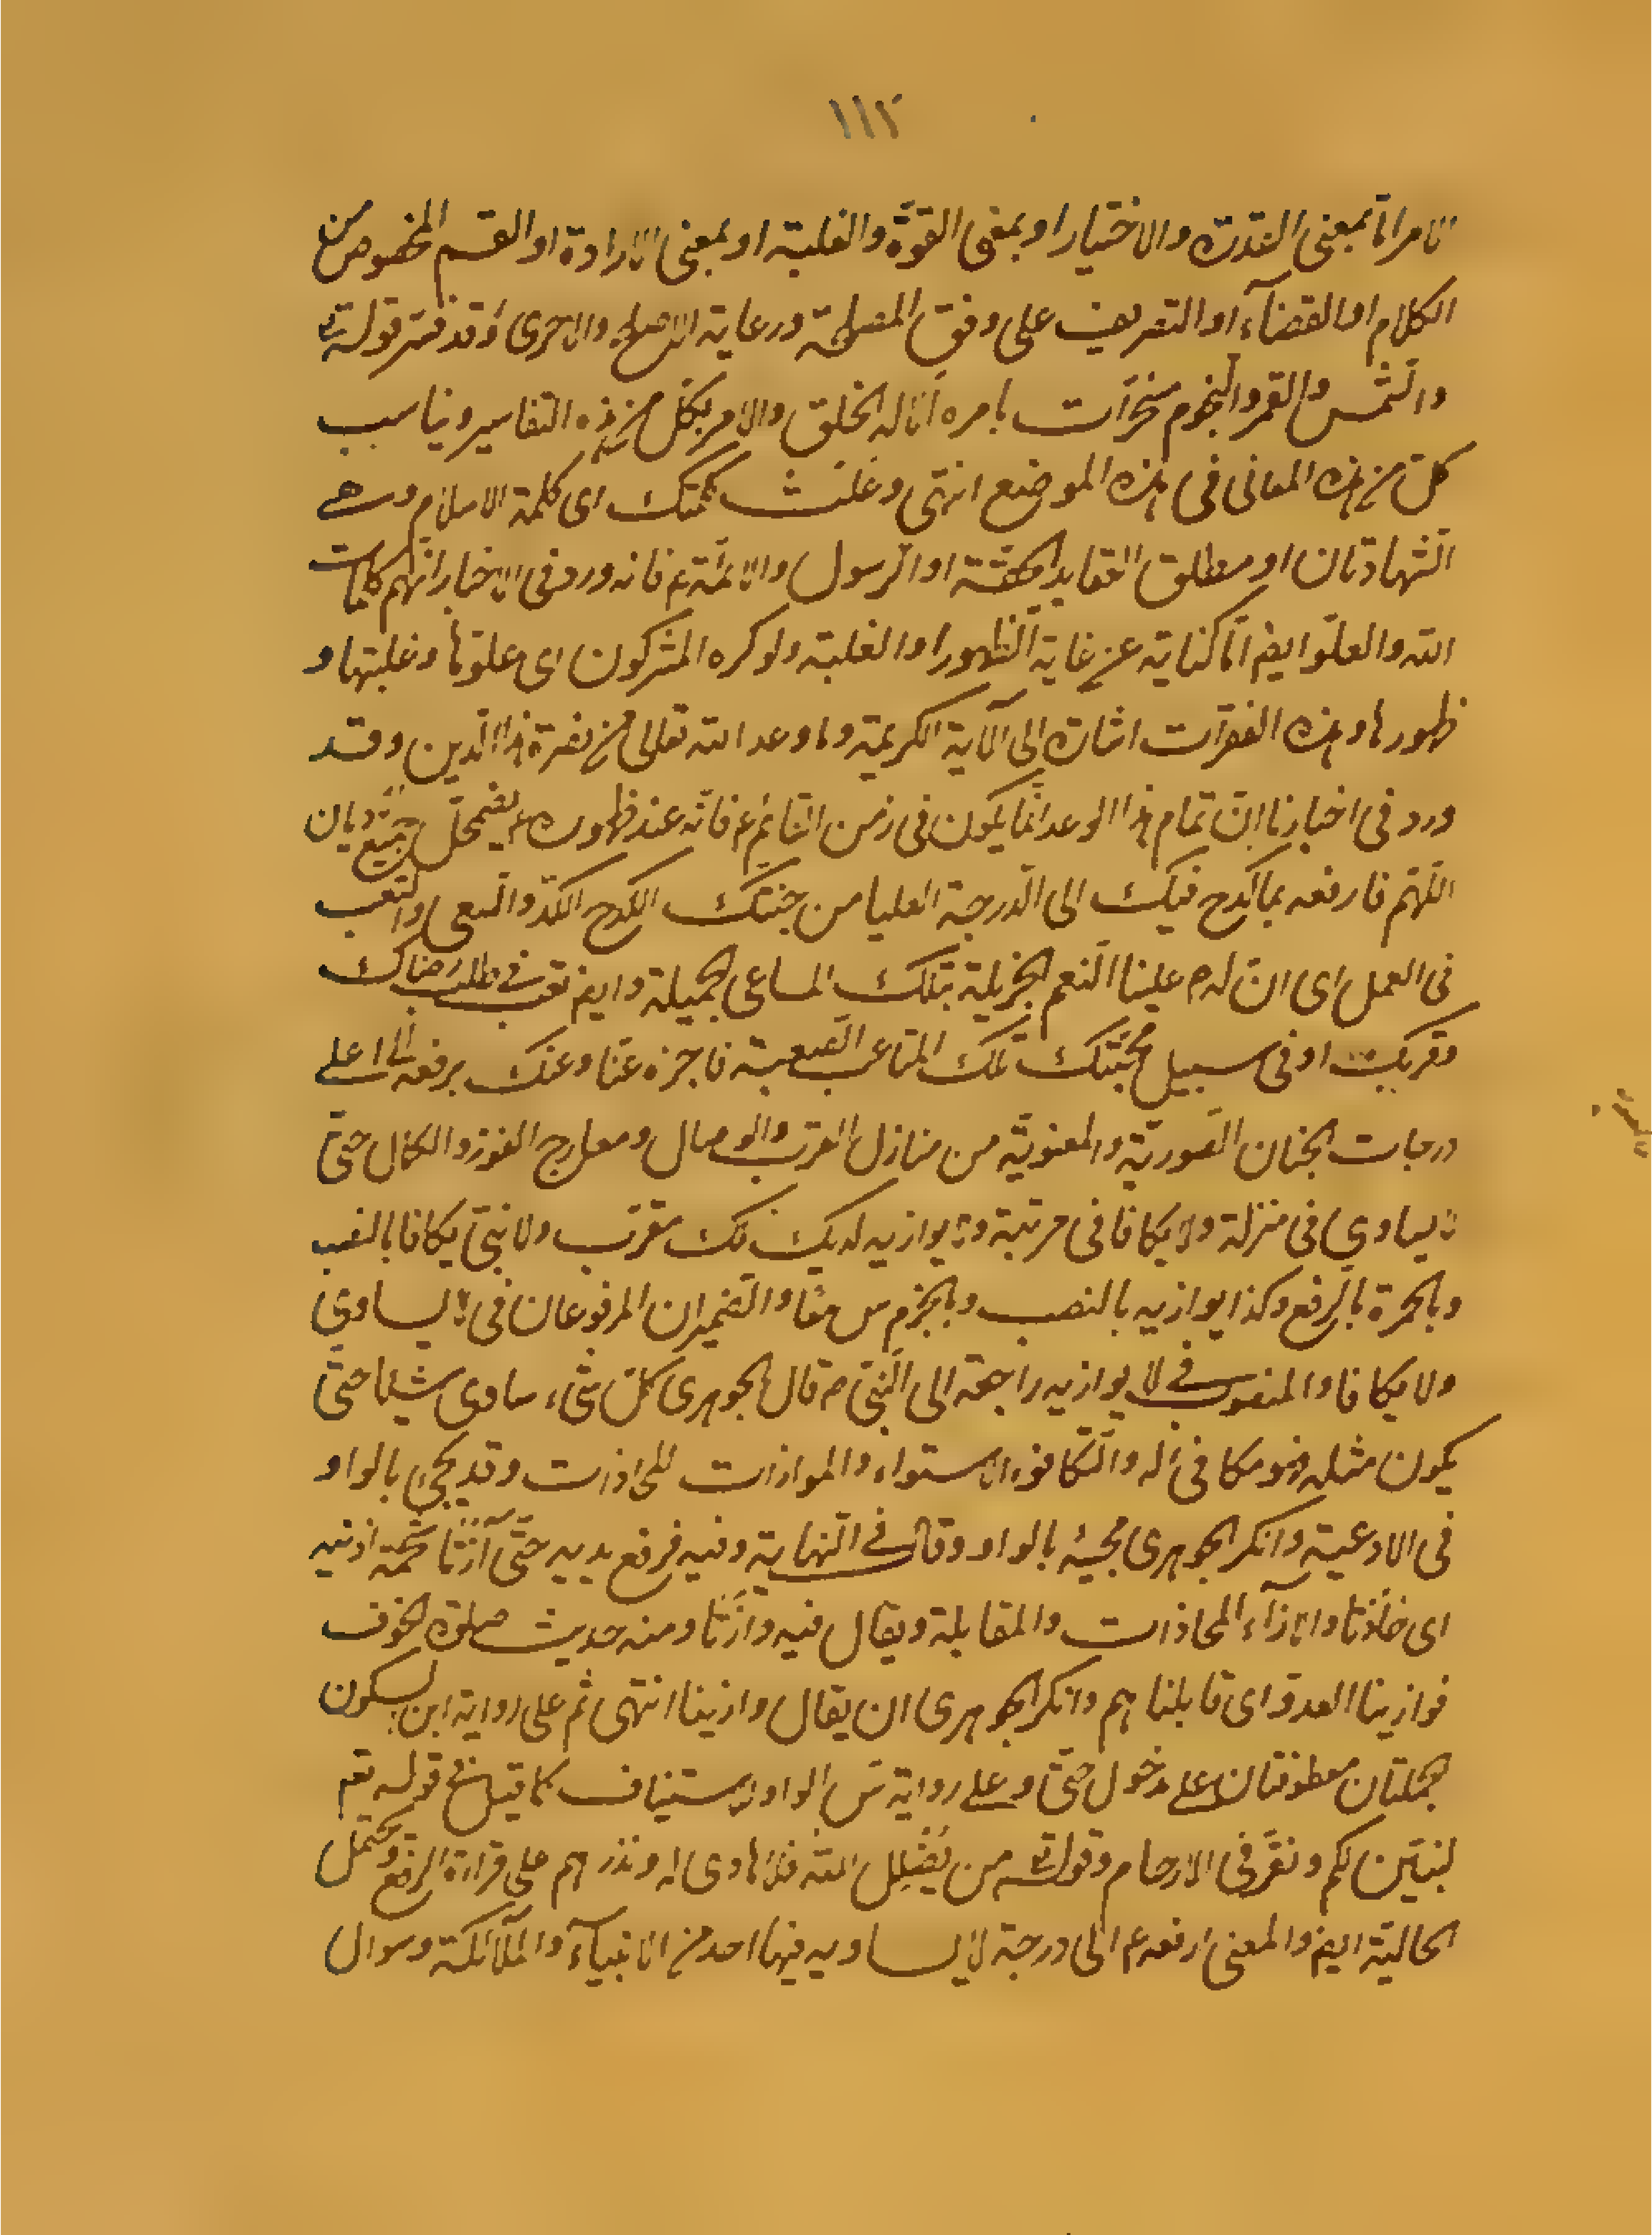 ١١٢
الامر اما بمعنى القدرة والاختيار او بمعنى القوّة والغلبة او بمعنى الارادة او القسم المخصوص من
الكلام او القضآء او التصريف على وفق المصلحة ورعاية الاصلح والاحرى وقد فسّر قوله تع
والشّمس والقمر والنجوم مسخّرات بامره الا له الخلق والامر بكلّ من هذه التفاسير ويناسب
كلّ من هذه المعانى فى هذه الموضع انتهى وعلت كلمتك اى كلمة الاسلام وهى
الشّهادتان او مطلق العقايد الحقّة او الرّسول والائمّة ع فانه ورد فى الاخبار انّهم كلمات
الله والعلوّ ايض امّا كناية عن غاية الظّهور او الغلبة ولو كره المشركون اى علوّها وغلبتها و
ظهورها وهذه الفقرات اشارة الى الآية الكريمة وما وعد الله تعالى من نصرة هذا الدّين وقد
ورد فى اخبارنا انّ تمام هذا الوعد انّما يكون فى زمن القائم ع فانّه عند ظهوره ع يضمحلّ جميع الاديان
اللّهمّ فارفعه بما كدح فيك الى الدّرجة العليا من جنتك الكدح الكدّ والسّعى والتعب
فى العمل اى انّ له ص علينا النّعم الجزيلة بتلك المساعى الجميلة وايض تعب فى طلب رضاك
وقربك او فى سبيل محبّتك تلك المتاعب الصّعبة فاجزه عنّا وعنك برفعه الى اعلى
درجات الجنان الصّوريّة والمعنويّة من منازل القرب والوصال ومعارج الفوز والكمال حتّى
لا يساوى فى منزلة ولا يكافا فى مرتبة ولا يوازيه لديك ملك مقرّب ولا نبىّ يكافا بالنصب
وبالحمرة بالرّفع وكذا يوازيه بالنصب وبالجزم س معًا والضّميران المرفوعان فى لا يساوى
ولا يكافا والمنصوب فى لا يوازيه راجعة الى النّبىّ ص قال الجوهرى كلّ شىء ساوى شيئا حتّى
يكون مثله فهو مكافئ له والتّكافؤ الاستواء والموازات المحاذات وقد يجئ بالواو
فى الادعية وانكر الجوهرى مجيئه بالواو وقال فى النّهاية وفيه فرفع يديه حتّى آزتا شحمة اذنيه
اى حاذتا والازآء المحاذات والمقابلة ويقال فيه وازتا ومنه حديث صلوة الخوف
فوازينا العدوّ اى قابلناهم وانكر الجوهرى ان يقال وازينا انتهى ثم على رواية ابن السكون
الجملتان معطوفتان على مدخول حتّى وعلى رواية س الواو للاستيناف كما قيل فى قوله تع
لنبيّن لكم ونقرّ فى الارحام وقوله تع من يضلل الله فلا هادى له ونذرهم على قراءة الرفع ويحتمل
الحالية ايض والمعنى ارفعه ع الى درجة لا يساويه فيها احد من الانبيآء والملآئكة وسؤال